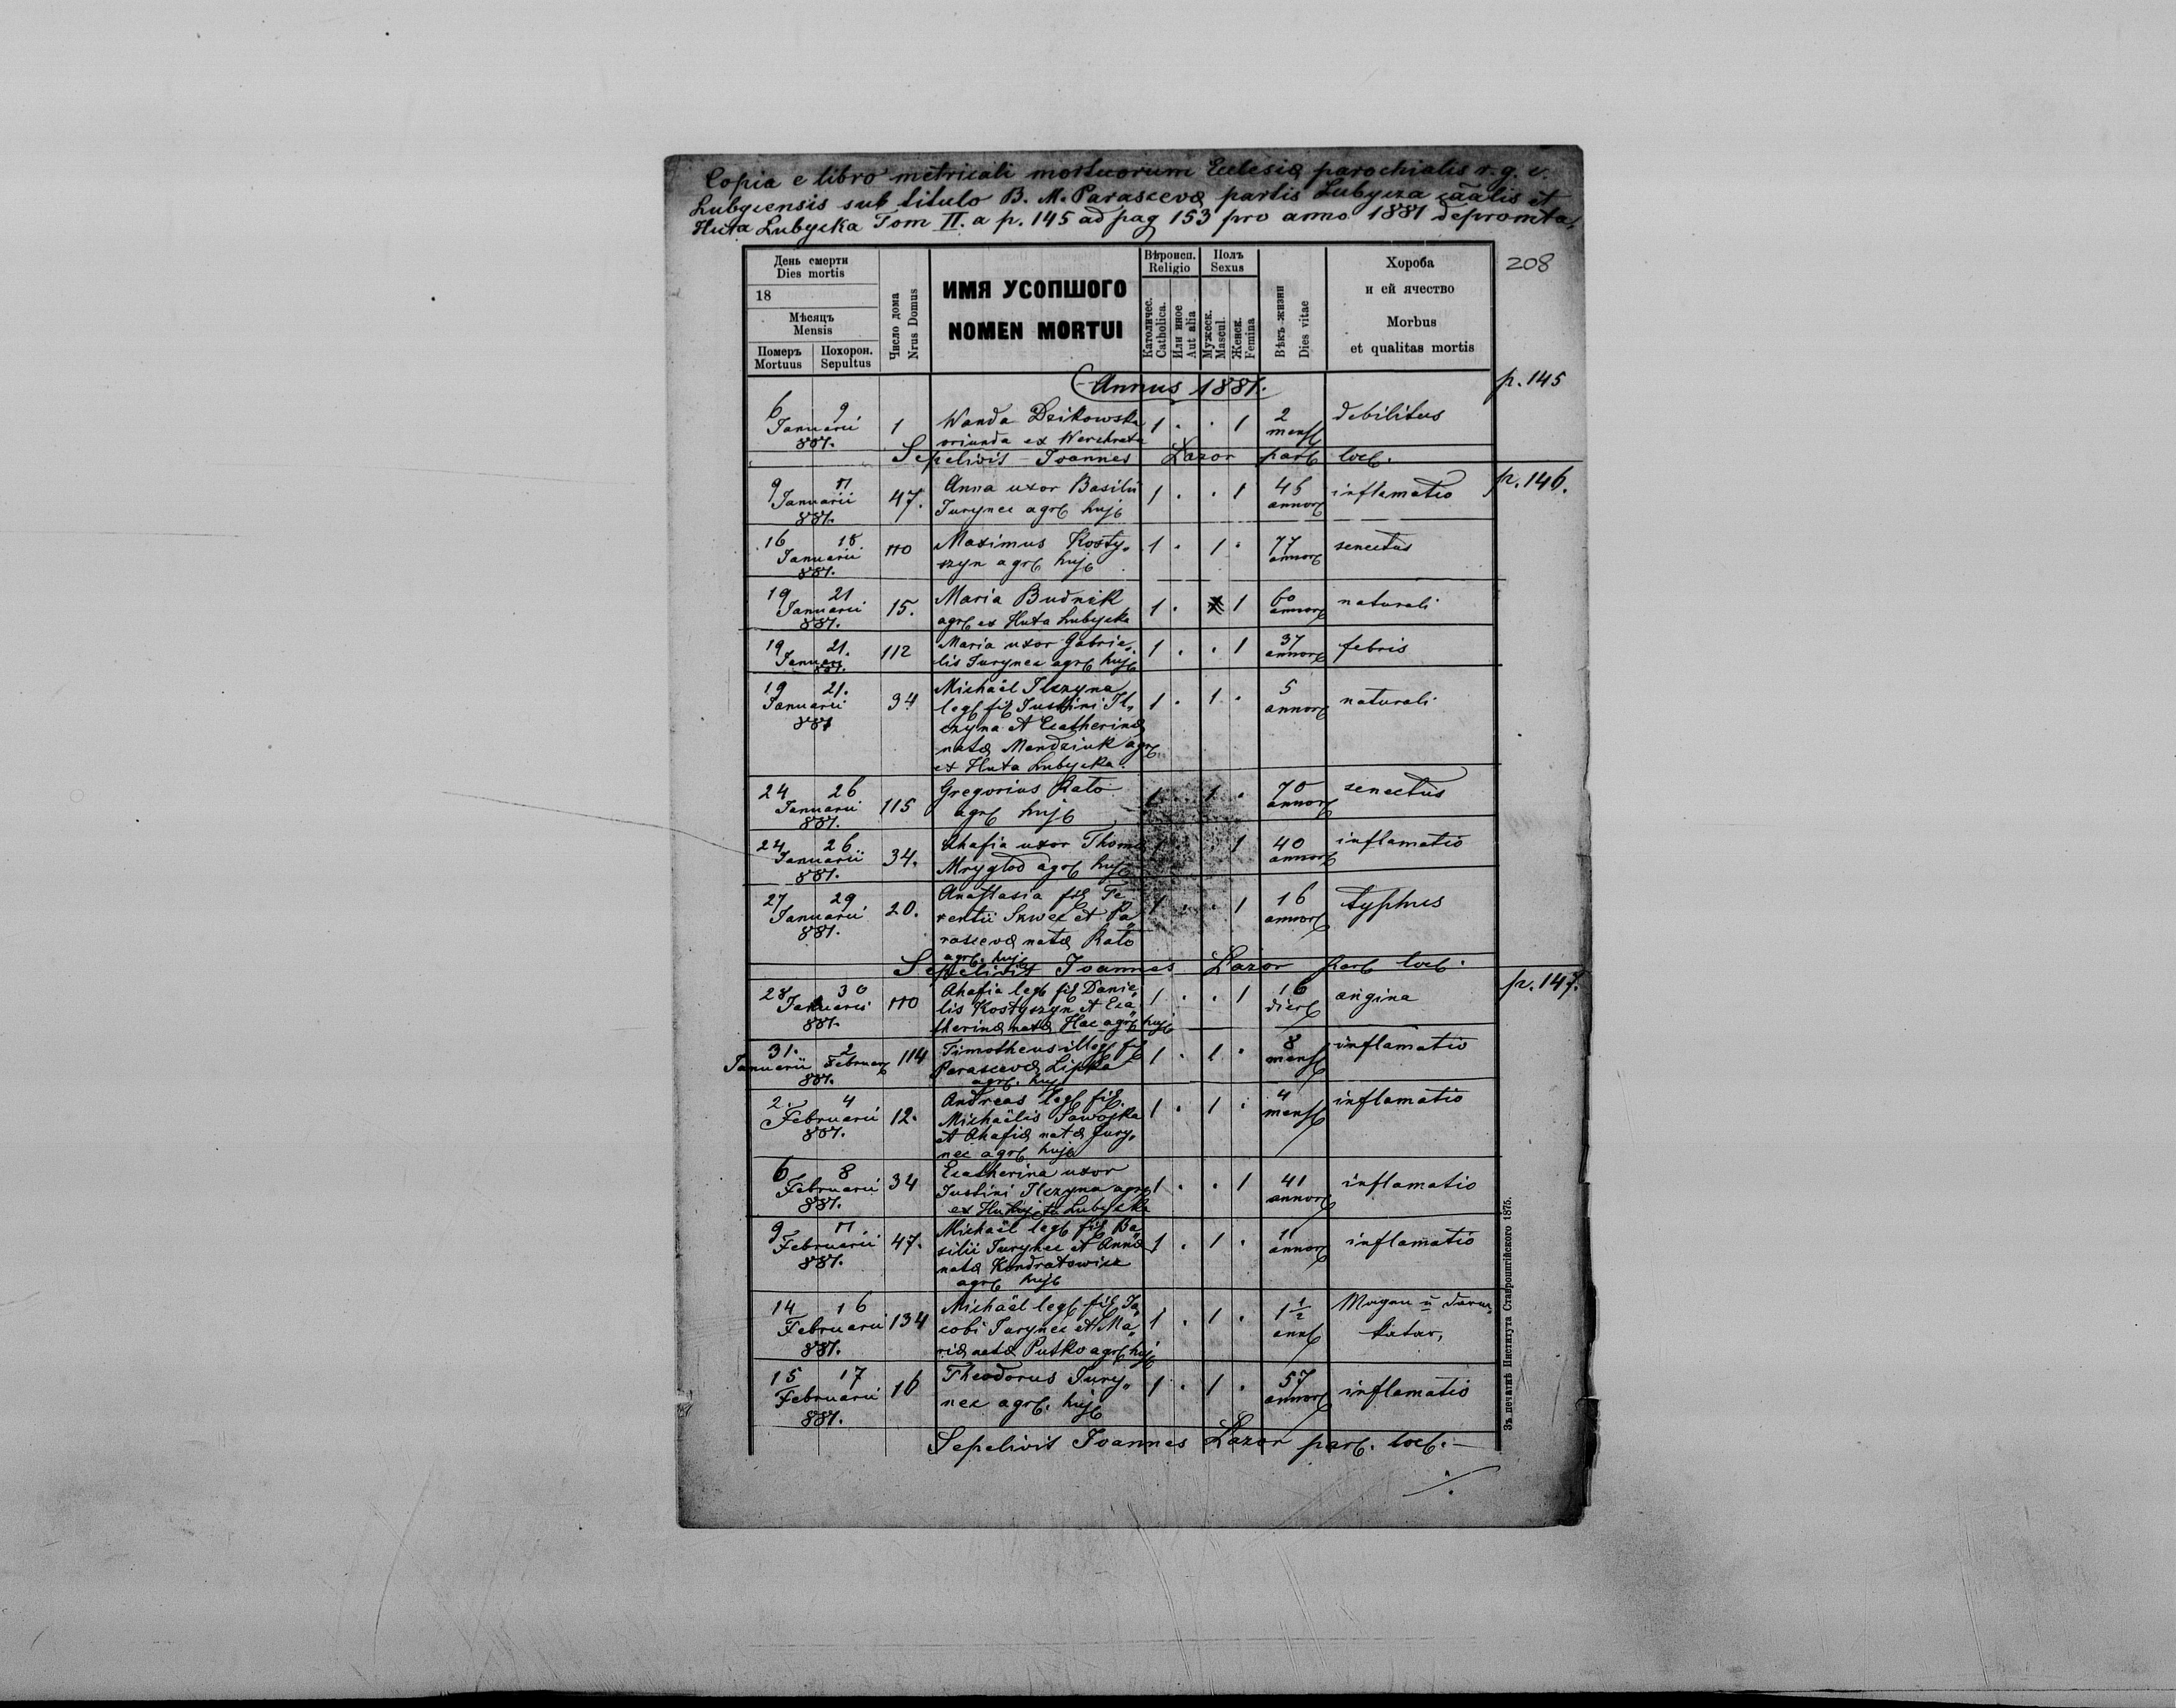 Copia e libro metricali mortuorum Ecclesiæ parochialis r. g. c.
Lubycensis sub titulo B. M. Parascevæ partis Lubycza caãlis et
Huta Lubycka Tom II. a p. 145 ad pag 153 pro anno 1881 depromta,
208
День смерти
Dies mortis
18
Мѣсяцъ
Mensis
Померъ
Mortuus
Похорон.
Sepultus
Число дома
Nrus Domus
ИМЯ УСОПШОГО
NOMEN MORTUI
Вѣроисп.
Religio
Католичес.
Catholica.
Или иное
Aut alia
Полъ
Sexus
Мужеск.
Mascul.
Женск.
Femina
Вѣкъ жизни
Dies vitae
Хороба
и ей ячество
Morbus
et qualitas mortis
Annus 1881.
p. 145
6 9 Januarii 881. 1 Wanda Dzikowska 1 . . 1 2 mens debilitas
oriunda ex Werchrata
Sepelivit Joannes Lazor par loc.
p. 146.
9 11 Januarii 881. 47. Anna uxor Basilii 1 . . 1 45 annor inflamatio
Jurynec agr huj
16 18 Januarii 881. 110 Maximus Kosty„ 1 . 1 . 77 annor senectus
szyn agr huj
19 21 Januarii 881. 15. Maria Budnik 1 . 1 60 annor naturali
agr ex Huta Lubycka
19 21. Januar 881. 112 Maria uxor Gabrie„ 1 . . 1 37 annor febris
lis Jurynec agr huj
19 21. Januarii 881 34 Michaël Ilczyna 1 . 1 . 5 annor naturali
leg fil Justini Il„
czyna et Ecatherinæ
natæ Mandziuk agr
ex Huta Lubycka.
24 26 Januarii 881. 115 Gregorius Rato 1 . 1 . 70 annor senectus
agr huj
24 26 Januarii 881. 34. Ahafia uxor Thomæ 1 1 40 annor inflamatio
Mrygłod agr huj
27 29 Januarii 881. 20. Anastasia fil Te„ 1 . . 1 16 annor typhus
rentii Szwec et Pa„
rascevæ natæ Rato
agr. huj
Sepelivit Joannes Lazor par loc.
p. 147.
28 30 Januarii 881. 110 Ahafia leg fil Danie„ 1 . . 1 16 dier angina
lis Kostyszyn et Eca„
therinæ natæ Hac agr huj
31. Januarii 2 Februar 881. 114 Timotheus illeg fil 1 . 1 . 8 mens inflamatio
Parascevæ Lipka
agr. huj
2. 4 Februarii 881. 12. Andreas leg fil. 1 . 1 . 4 mens inflamatio
Michaëlis Sawojka
et Ahafiæ natæ Jury„
nec agr huj
6 8 Februarii 881. 34 Ecatherina uxor 1 . . 1 41 annor inflamatio
Justini Ilczyna agr
ex Huta Lubycka
9 11 Februarii 881. 47. Michaël leg fil Ba„ 1 . 1 . 11 annor inflamatio
silii Jurynec et Annæ
natæ Kondratowicz
agr huj
14 16 Februarii 881. 134 Michaël leg fil Ja„ 1 . 1 . 1½ ann Magen u Darm„
cobi Jurynec et Ma„ katar,
riæ natæ Putko agr huj
15 17 Februarii 881. 16 Theodorus Jury„ 1 . 1 . 57 annor inflamatio
nec agr. huj
Sepelivit Joannes Lazor par. loc. —
Зъ печатнѣ Института Ставропигійского 1875.